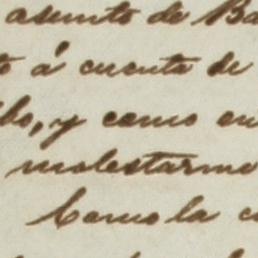 asunto de Ba
á cuenta de
y como en
molestarme
Como la c